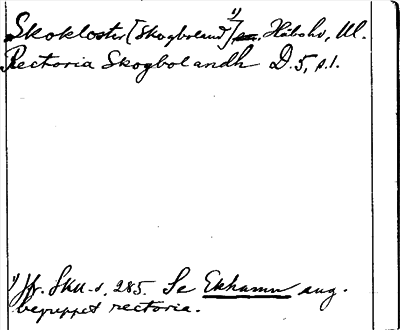 Skokloster [Skogboland]¹⁾ sn. Håbohd, Ul.
Rectoria Skogbolandh D.5, s.1.
¹⁾ Jfr. SkU-s. 285. Se Ekhamn ang.
begreppet rectoria.